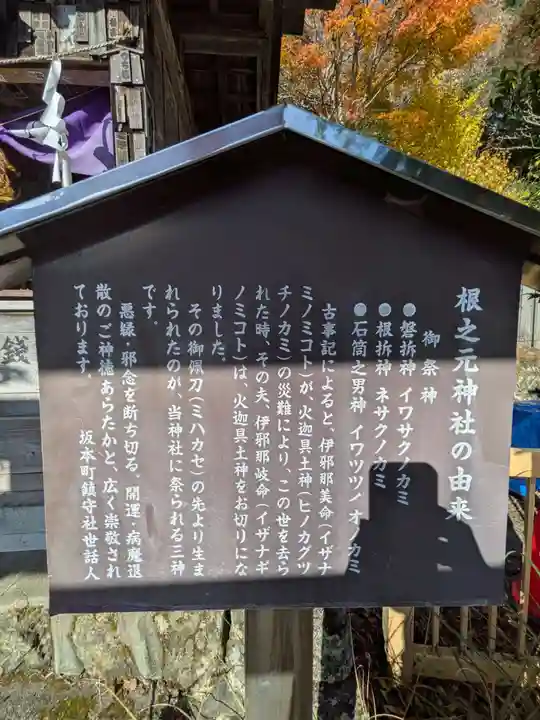 根之元神社の由来
御祭神
●磐拆神 イワサクノカミ
●根拆神 ネサクノカミ
●石筒之男神 イワツツノオノカミ
古事記によると、伊邪那美命(イザナ
ミノミコト)が、火迦具土神(ヒノカグツ
チノカミ)の災難により、この世を去ら
れた時、その夫、伊邪那岐命(イザナギ
ノミコト)は、火迦具土神をお切りにな
りました。
その御佩刀(ミハカセ)の先より生ま
れられたのが、当神社に祭られる三神
です。
悪縁・邪念を断ち切る、開運・病魔退
散のご神徳あらたかと、広く崇敬され
ております。
坂本町鎮守社世話人
銭